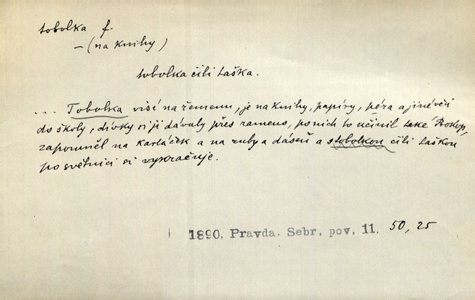 tobolka f.
– (na knihy)
tobolka čili taška.
... Tobolka visí na řemenu, je na knihy, papíry, péra a jiné věci
do školy, dívky si ji dávaly přes rameno, po nich to učinil také Prokop,
zapomněl na kartáček a na zuby a dásně a s tobolkou čili taškou
po světnici si vykračuje.
1890. Pravda. Sebr. pov. 11. 50, 25